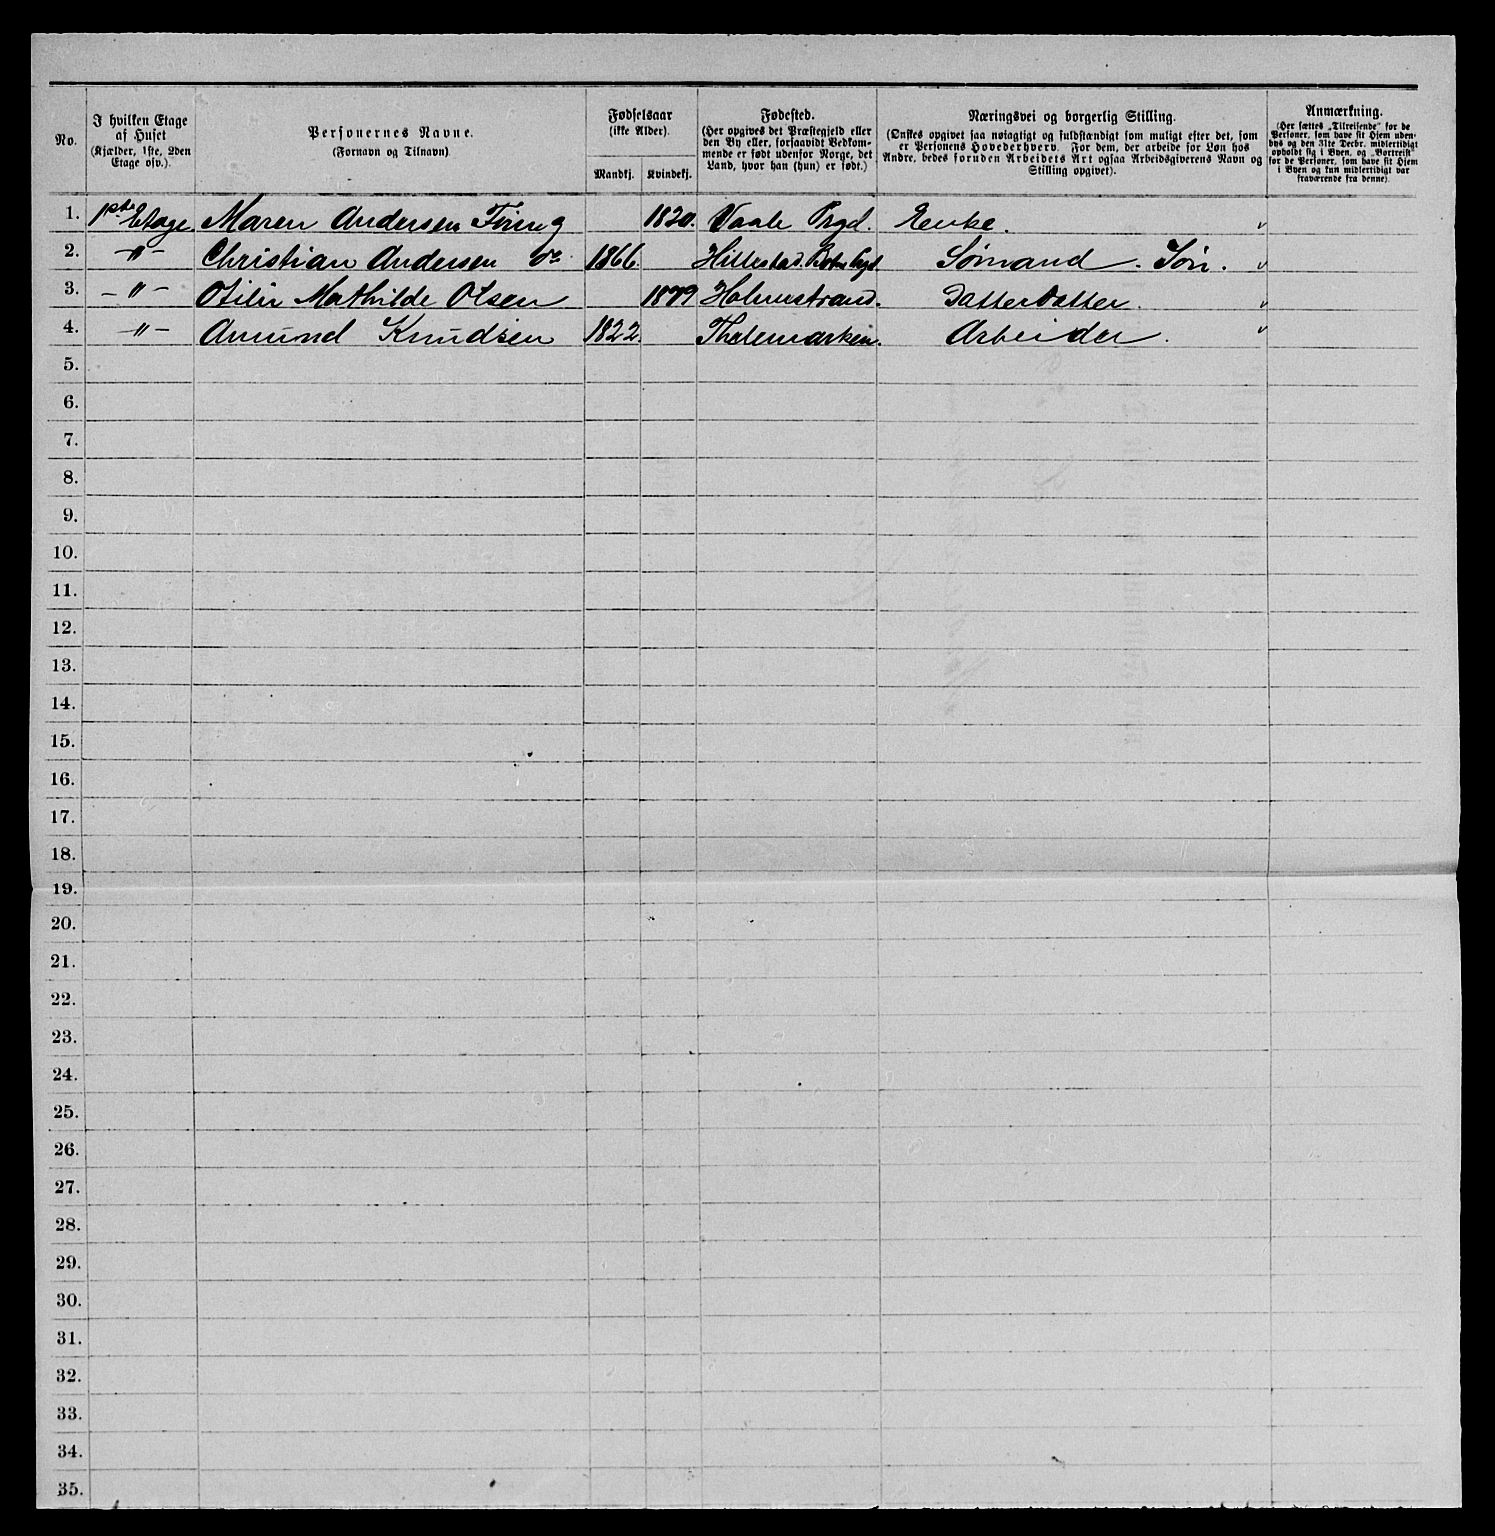 No.
I hvilken Etage
af Huset
(Kjælder, 1ste, 2den
Etage osv.).
Personernes Navne.
(Fornavn og Tilnavn)
Fødselsaar
(ikke Alder).
Mandkj. Kvindekj.
Fødested.
(Her opgives det Præstegjeld eller
den By eller, forsaavidt Vedkom-
mende er født udenfor Norge, det
Land, hvor han (hun) er født.)
Næringsvei og borgerlig Stilling.
(Ønskes opgivet saa nøiagtigt og fuldstændigt som muligt efter det, som
er Personens Hovederhverv. For dem, der arbeide for Løn hos
Andre, bedes foruden Arbeidets Art ogsaa Arbeidsgiverens Navn og
Stilling opgivet).
Anmærkning.
(Her sættes „Tilreisende" for de
Personer, som have sit Hjem uden-
bys og den 31te Decbr. midlertidigt
opholdt sig i Byen, og „Bortreist"
for de Personer, som have sit Hjem
i Byen og kun midlertidigt var
fraværende fra denne)
1. 1ste Etage Maren Andersen 1820. Vaale Prgd. Enke. "
2. -"- Christian Andersen do 1866. Hillestad. Sømand. Søn. "
3. -"- Otilie Mathilde Olsen 1879 Holmestrand. Datterdatter. "
4. -"- Amund Knudsen 1822. Thelemarken. Arbeider. "
5.
6.
7.
8.
9.
10.
11.
12.
13.
14.
15.
16.
17.
18.
19.
20.
21.
22.
23.
24.
25.
26.
27.
28.
29.
30.
31.
32.
33.
34.
35.